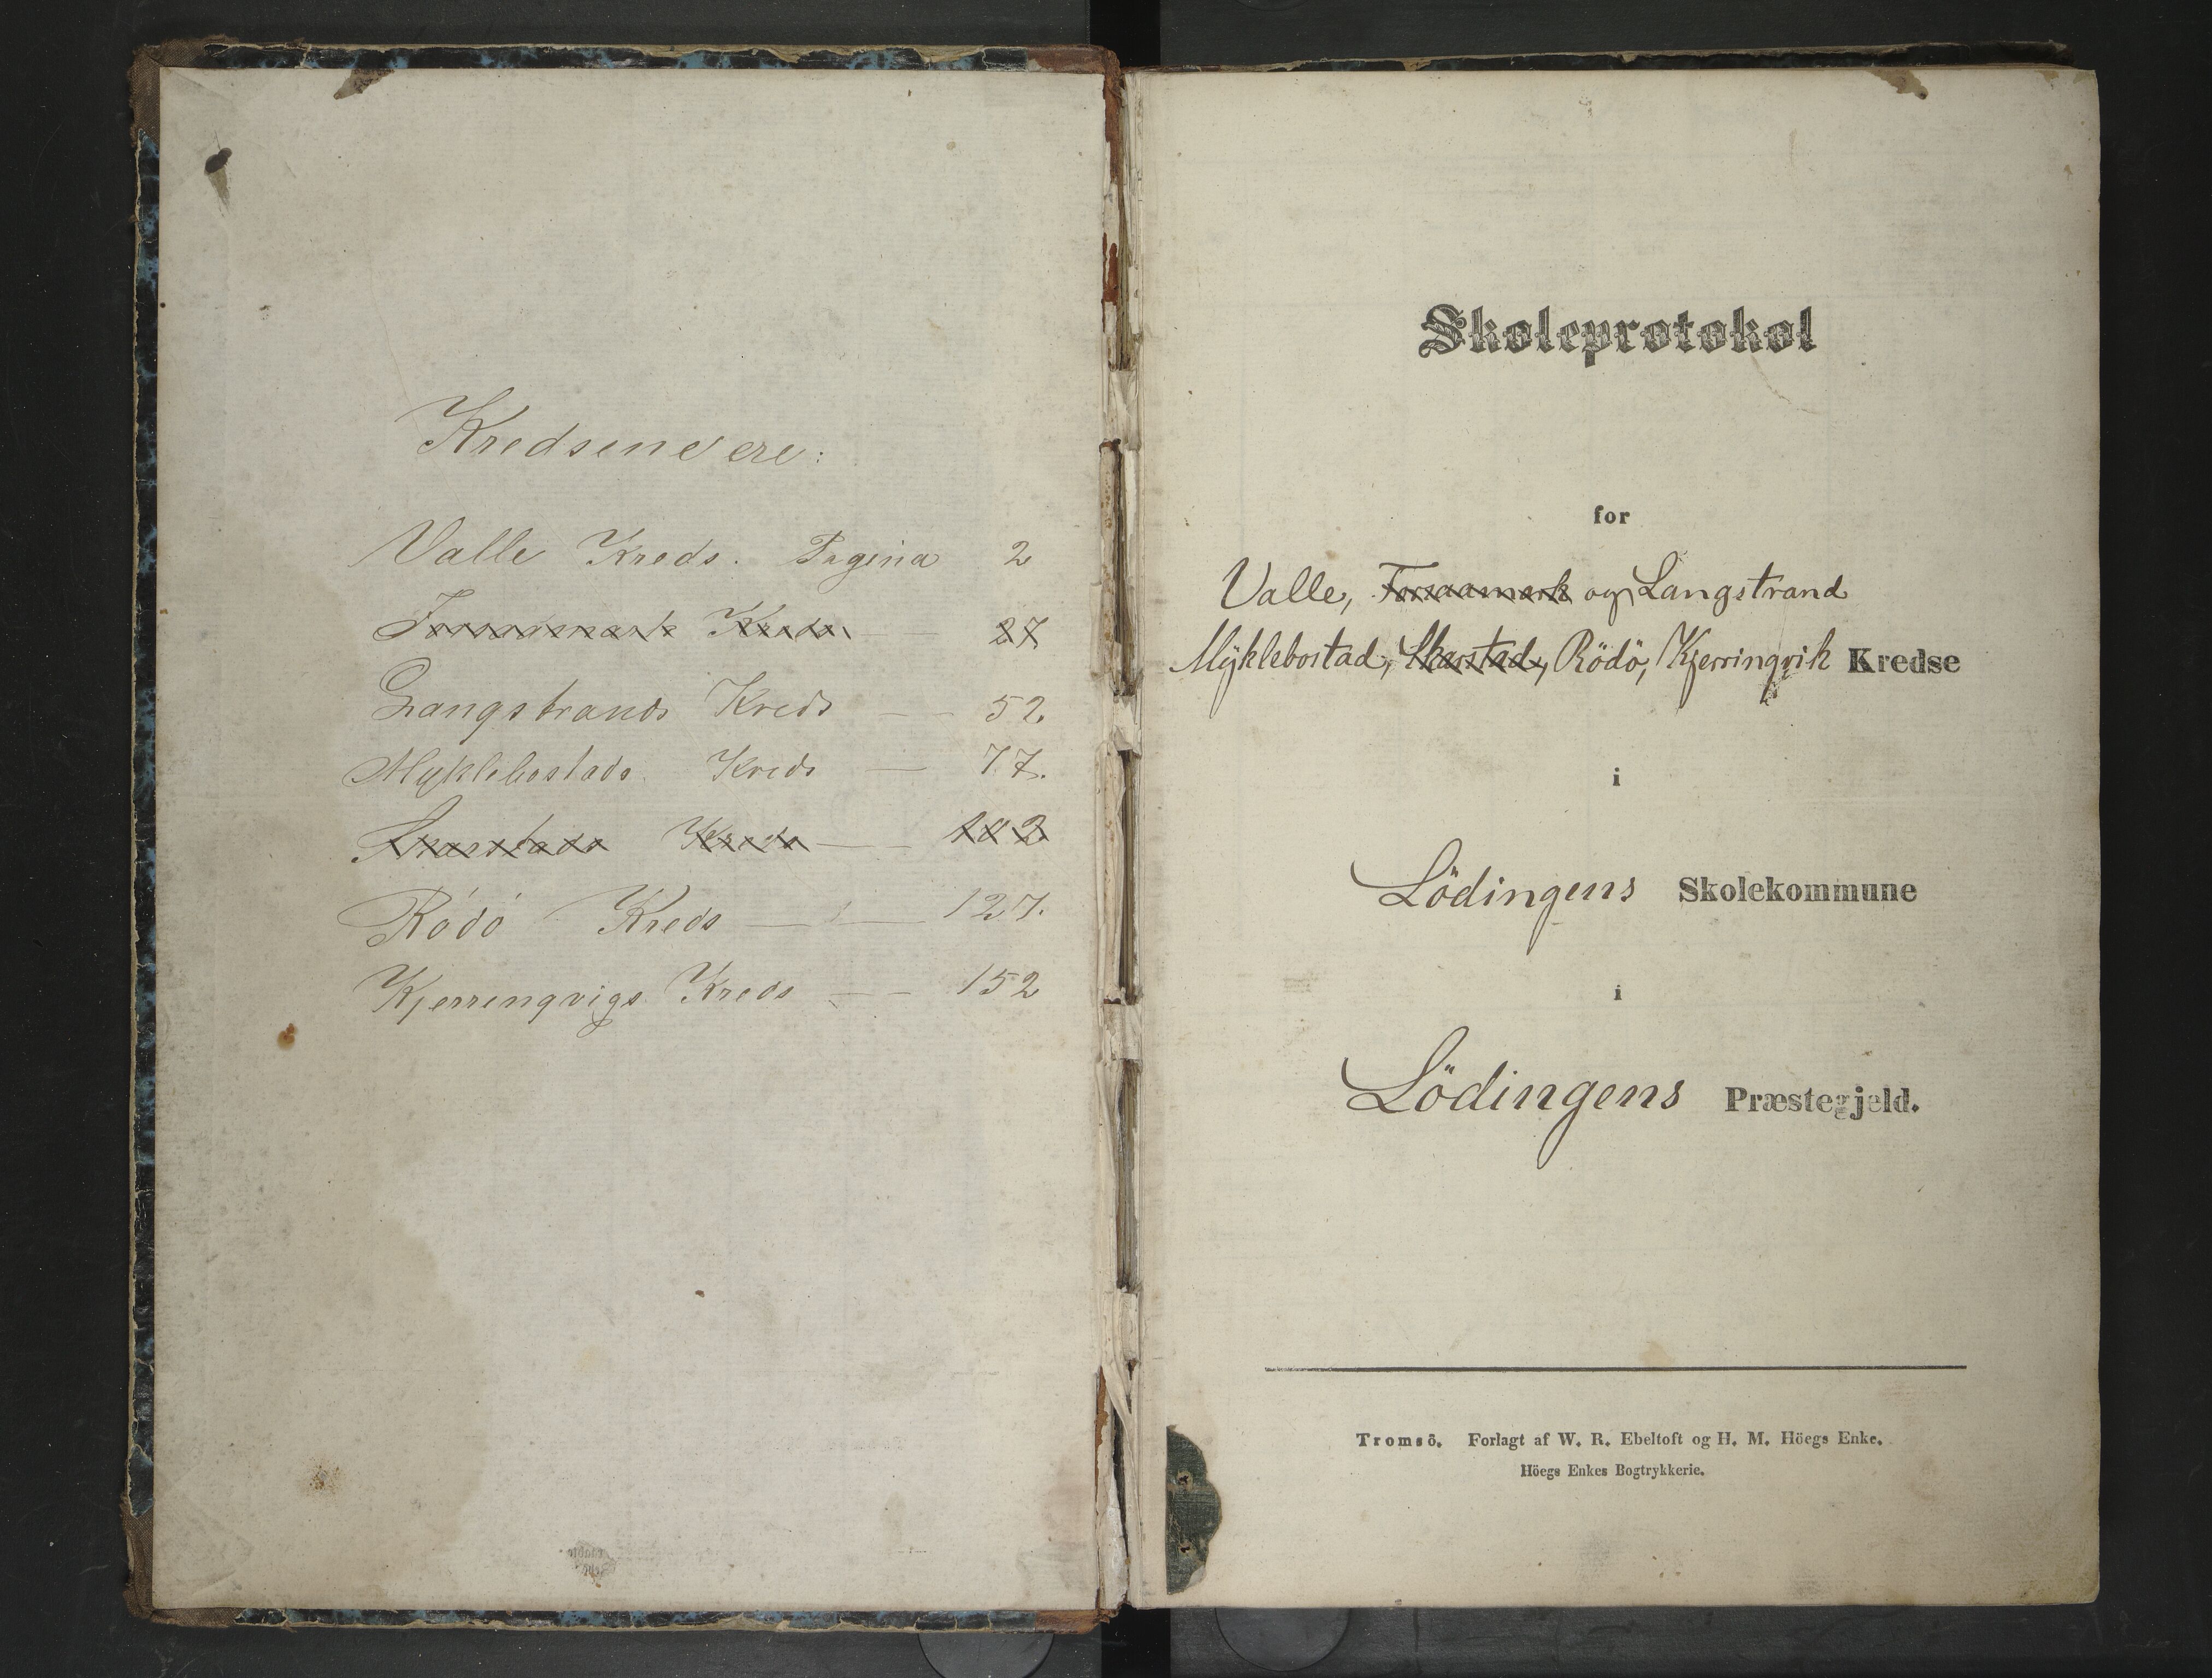 Kredsene ere:
Valle Kreds. Pagina 2
Forsaamark Kreds 27
Langstrands Kreds — 52.
Myklebostads Kreds — 77.
Skarstads Kreds — 102
Rödö Kreds — 127.
Kjerringvigs Kreds — 152
Skoleprotokol
for
Valle, Forsaamark og Langstrand
Myklebostad, Skarstad, Rödö, Kjerringvik Kredse
i
Lödingens Skolekommune
i
Lödingens Præstegjeld.
Tromsö. Forlagt af W. R. Ebeltoft og H. M. Höegs Enke.
Höegs Enkes Bogtrykkerie.